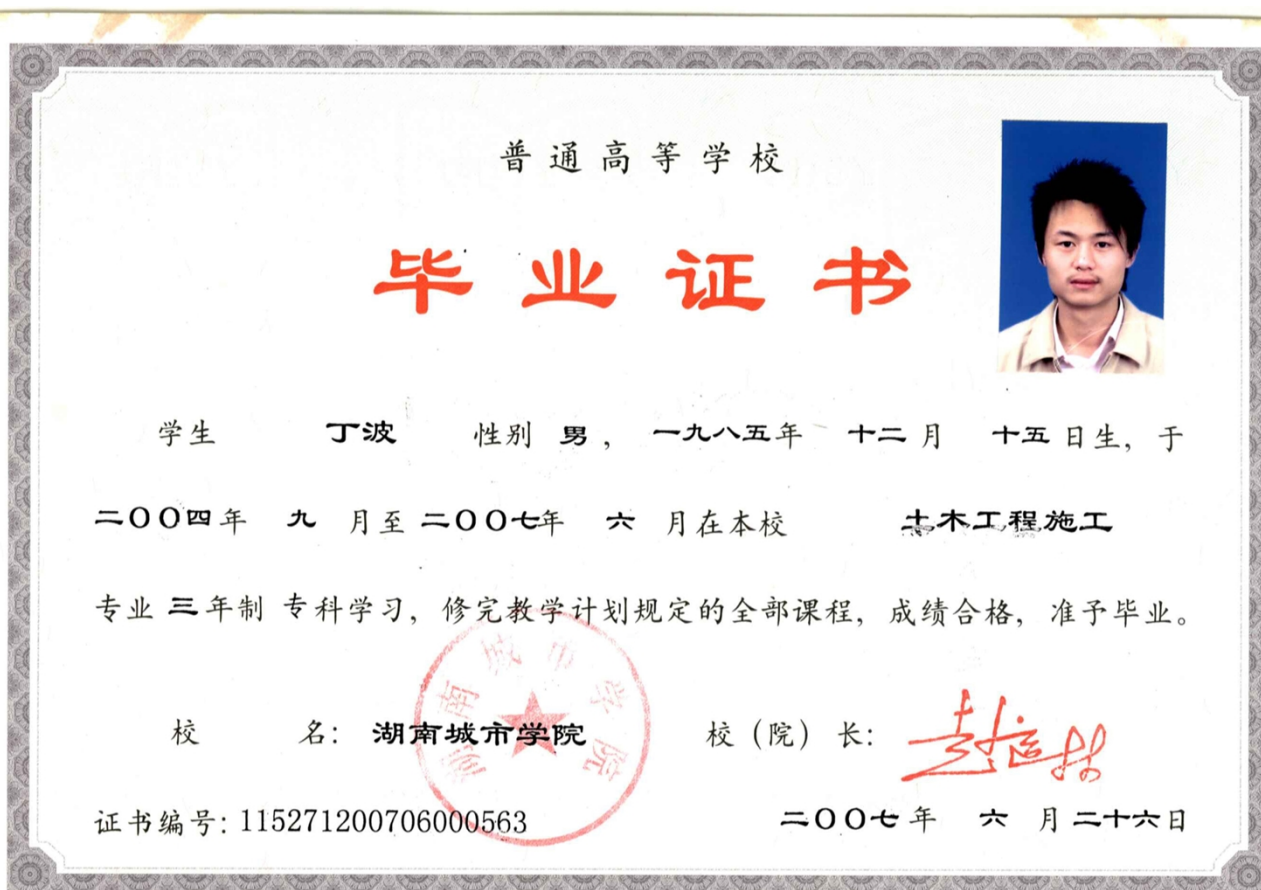 普通高等学校
毕业证书
学生 丁波 性别 男，一九八五年 十二月 十五日生，于
二〇〇四年 九 月至 二〇〇七年 六 月在本校 土木工程施工
专业 三年制 专科学习，修完教学计划规定的全部课程，成绩合格，准予毕业。
校 名：湖南城市学院 校（院）长：
湖南城市学院
证书编号：115271200706000563 二〇〇七年 六 月二十六日